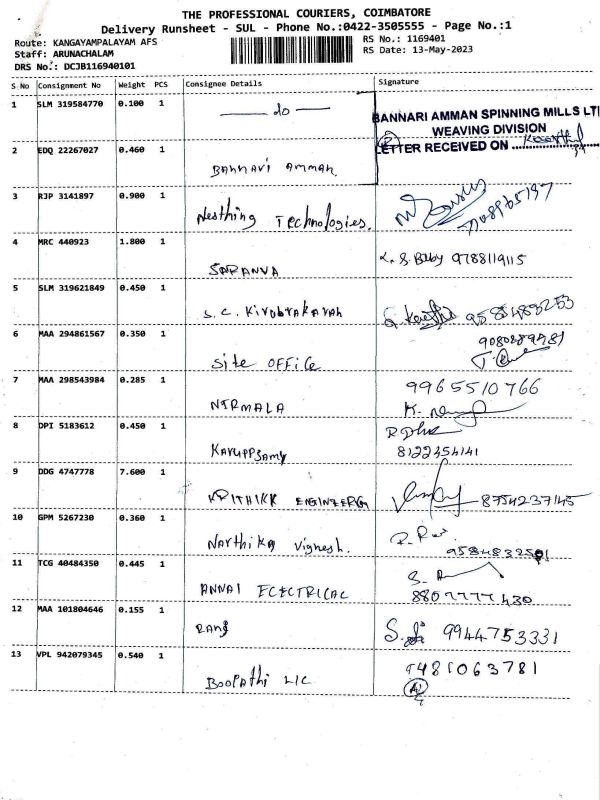 THE PROFESSIONAL COURIERS, COIMBATORE
Delivery Runsheet - SUL - Phone No.:0422-3505555 - Page No.:1
Route: KANGAYAMPALAYAM AFS
RS No.: 1169401
Staff: ARUNACHALAM
RS Date: 13-May-2023
DRS No.: DCJB116940101
S No Consignment No Weight PCS Consignee Details Signature
1 SLM 319584770 0.100 1 do
BANNARI AMMAN SPINNING MILLS LT
WEAVING DIVISION
LETTER RECEIVED ON
2 EDQ 22267027 0.460 1
Bannari Amman.
3 RJP 3141897 0.900 1
Nesthing Technologies.
4 MRC 440923 1.800 1
SARANYA 9788119115
5 SLM 319621849 0.450 1
S. C. 9585483253
6 MAA 294861567 0.350 1
Site OFFice
7 MAA 298543984 0.285 1 9965510766
NIRMALA
8 DPI 5183612 0.450 1
KARUPPSAMY 8122454141
9 DDG 4747778 7.600 1
KRITHIKK 8754237145
10 GPM 5267230 0.360 1
Narthika Vignesh.
11 TCG 40484350 0.445 1
ANNAI ECECTRICAL 8807777430
12 MAA 101804646 0.155 1
9944753331
13 VPL 942079345 0.540 1 9481063781
Boopathi LIC